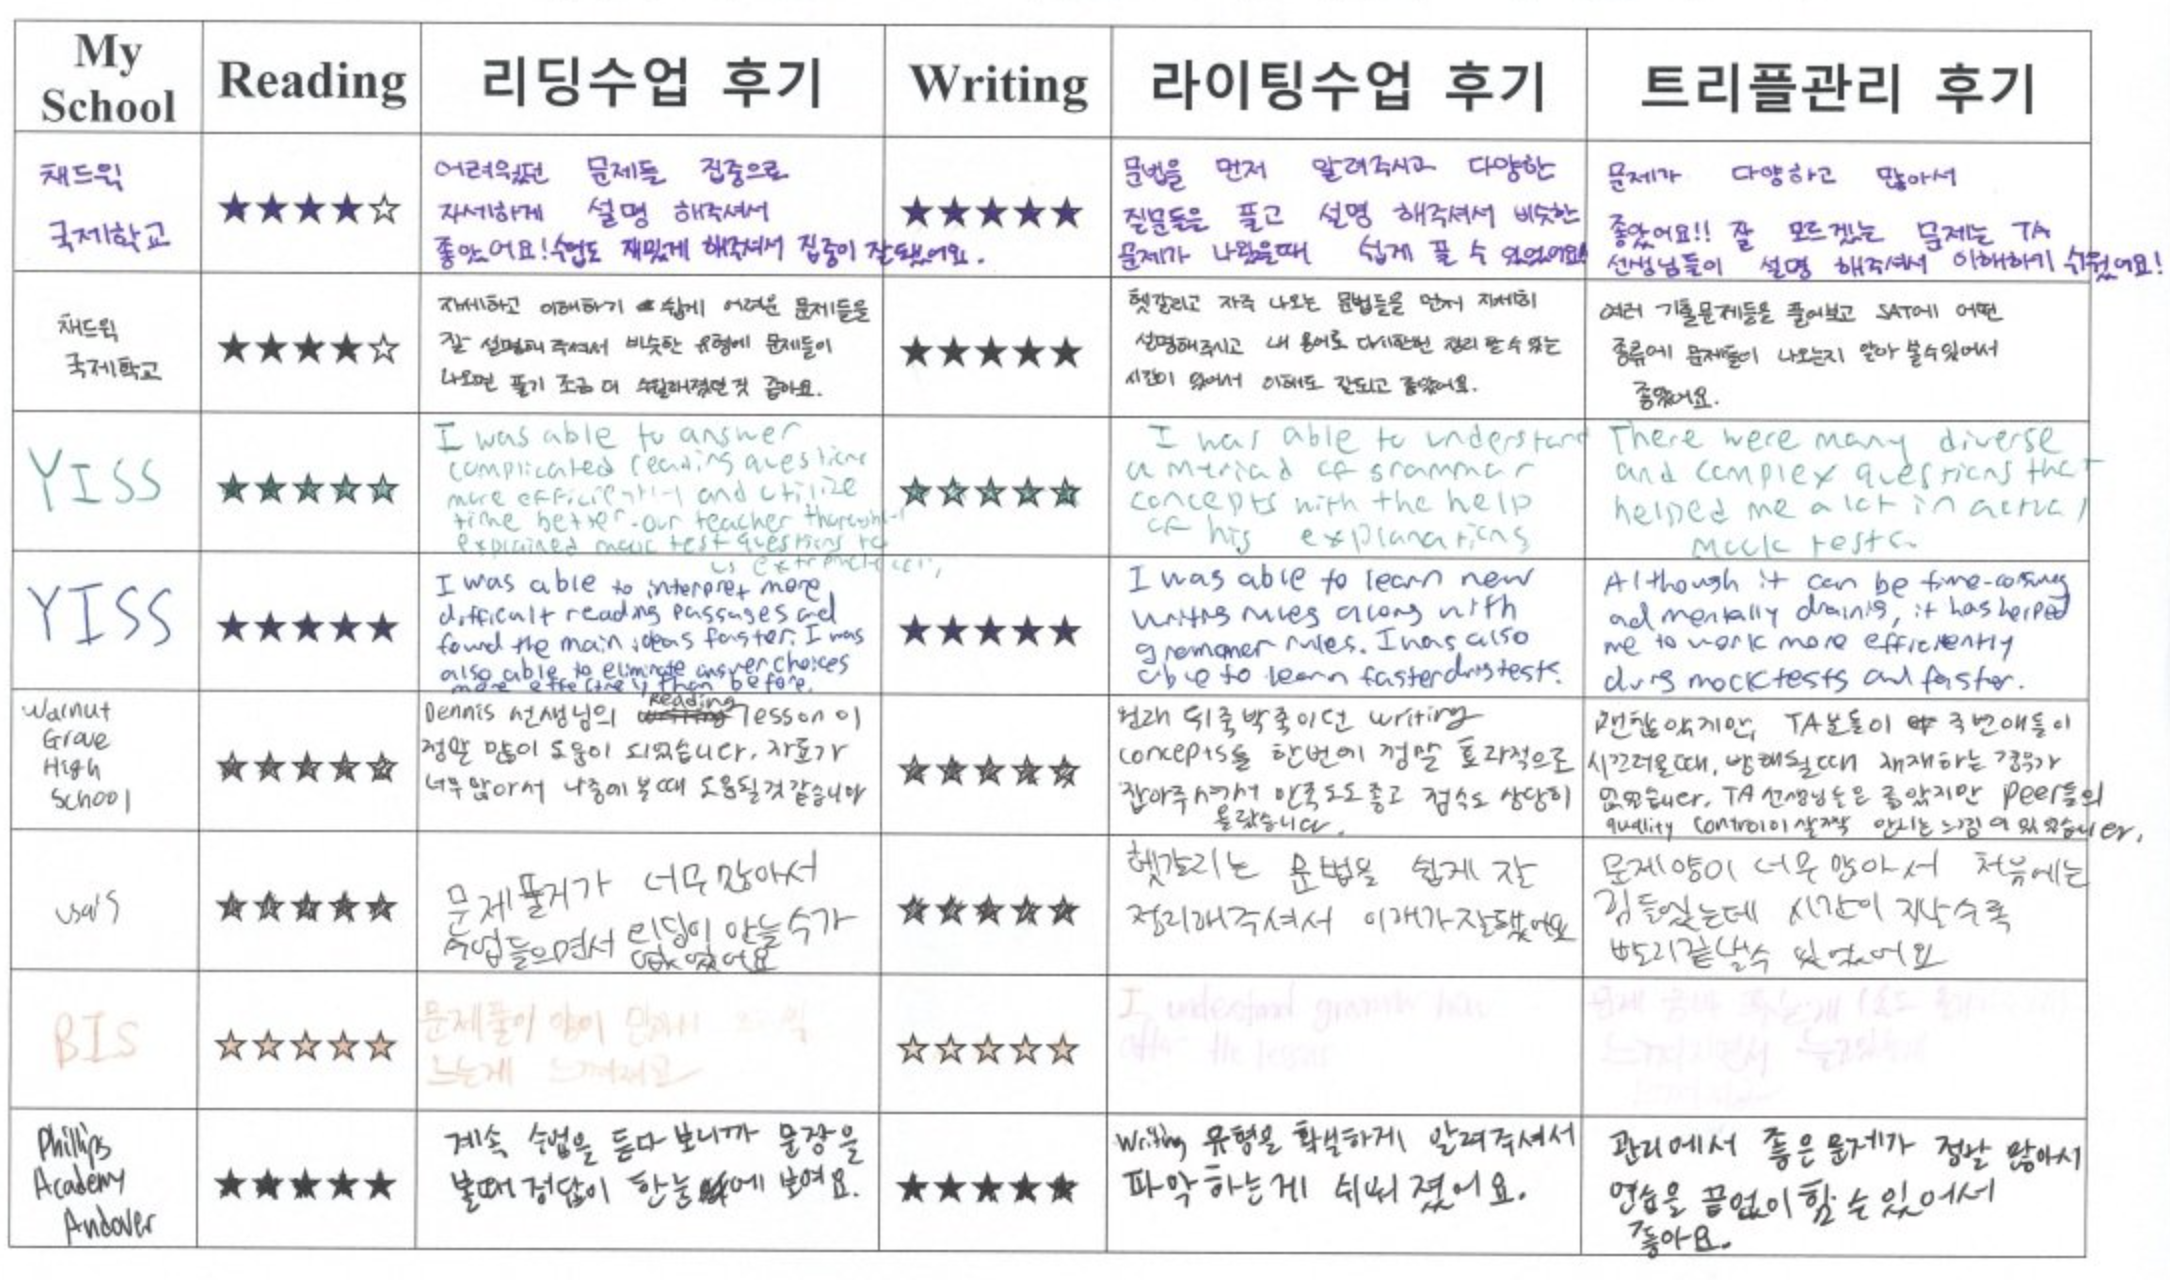 My School
Reading
리딩수업 후기
Writing
라이팅수업 후기
트리플관리 후기
채드윅
국제학교
★★★★☆
어려웠던 문제들 집중으로
자세하게 설명 해주셔서
좋았어요! 수업도 재밌게 해주셔서 집중이 잘됐어요.
★★★★★
문법을 먼저 알려주시고 다양한
질문들은 풀고 설명 해주셔서 비슷한
문제가 나왔을때 쉽게 풀 수 있었어요!
문제가 다양하고 많아서
좋았어요!! 잘 모르겠는 문제는 TA
선생님들이 설명 해주셔서 이해하기 쉬웠어요!
채드윅
국제학교
★★★★☆
자세하고 이해하기 쉽게 어려운 문제들을
잘 설명해 주셔서 비슷한 유형에 문제들이
나오면 풀기 조금 더 수월해졌던 것 같아요.
★★★★★
헷갈리고 자주 나오는 문법들을 먼저 자세히
설명해주시고 내 용어로 다시한번 정리 할 수 있는
시간이 있어서 이해도 잘되고 좋았어요.
여러 기출문제들을 풀어보고 SAT에 어떤
종류에 문제들이 나오는지 알아 볼수있어서
좋았어요.
YISS
★★★★★
I was able to answer
complicated reading questions
more efficiently and utilize
time better. Our teacher thoroughly
explained mock test questions to
us
★★★★★
I was able to understand
a meriad of grammar
concepts with the help
of his explanations
There were many diverse
and complex questions that
helped me a lot in actual
mock tests.
YISS
★★★★★
I was able to interpret more
difficult reading passages and
found the main ideas faster. I was
also able to eliminate answer choices
more effectively than before.
★★★★★
I was able to learn new
writing rules along with
grammer rules. I was also
able to learn faster during tests.
Although it can be time-consuming
and mentally draining, it has helped
me to work more efficiently
during mock tests and faster.
Walnut
Grove
High
School
★★★★★
Dennis 선생님의 Reading lesson이
정말 많이 도움이 되었습니다. 자료가
너무 많아서 나중에 볼때 도움될것 같습니다
★★★★★
원래 뒤죽박죽이던 writing
concepts를 한번에 정말 효과적으로
잡아주셔서 만족도도 좋고 점수도 상당히
올랐습니다.
괜찮았지만, TA분들이 주변애들이
시끄러울때, 방해될때 제재하는 경우가
없었습니다. TA선생님들은 좋았지만 peer들의
quality control이 살짝 안되는 느낌이 있었습니다.
usa's
★★★★★
문제풀거가 너무많아서
수업들으면서 리딩이 안늘수가
없었어요
★★★★★
헷갈리는 문법을 쉽게 잘
정리해주셔서 이해가잘됐어요
문제양이 너무 많아서 처음에는
힘들었는데 시간이 지날수록
빨리끝낼수 있었어요
BIS
★★★★★
문제풀이 양이 많아서
느는게 느껴지고
★★★★★
I understand grammar
after the lesson
문제
느껴지면서
Phillips
Academy
Andover
★★★★★
계속 수업을 듣다 보니까 문장을
볼때 정답이 한눈에 보여요.
★★★★★
Writing 유형을 확실하게 알려주셔서
파악하는게 쉬워졌어요.
관리에서 좋은 문제가 정말 많아서
연습을 끝없이 할 수 있어서
좋아요.